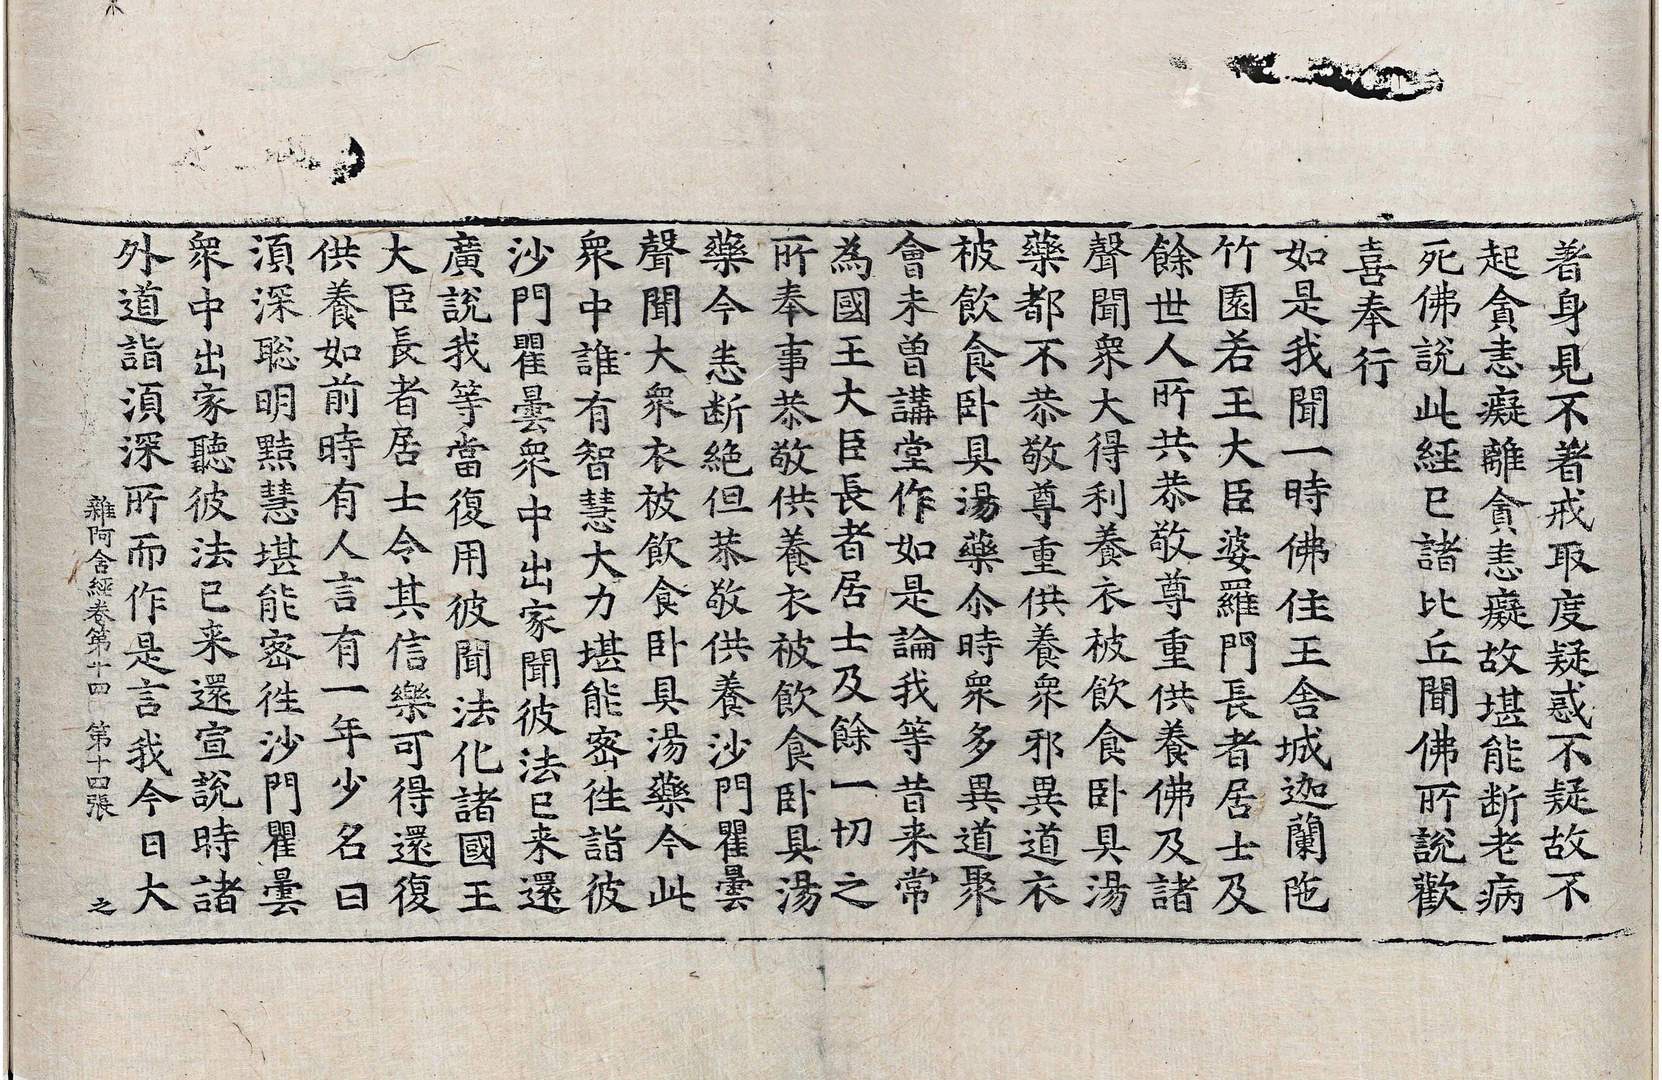 著身見不著戒取度疑惑不疑故不
起貪恚癡離貪恚癡故堪能断老病
死佛說此經已諸比丘聞佛所說歡
喜奉行
如是我聞一時佛住王舍城迦蘭陁
竹園若王大臣婆羅門長者居士及
餘世人所共恭敬尊重供養佛及諸
聲聞衆大得利養衣被飲食卧具湯
藥都不恭敬尊重供養衆邪異道衣
被飲食卧具湯藥尒時衆多異道聚
會未曽講堂作如是論我等昔来常
為國王大臣長者居士及餘一切之
所奉事恭敬供養衣被飲食卧具湯
藥今悉断絶但恭敬供養沙門瞿曇
聲聞大衆衣被飲食卧具湯藥今此
衆中誰有智慧大力堪能密徃詣彼
沙門瞿曇衆中出家聞彼法已来還
廣說我等當復用彼聞法化諸國王
大臣長者居士令其信樂可得還復
供養如前時有人言有一年少名曰
湏深聡明黠慧堪能密徃沙門瞿曇
衆中出家聽彼法已来還宣說時諸
外道詣湏深所而作是言我今日大
雜阿含經卷第十四 第十四張 之